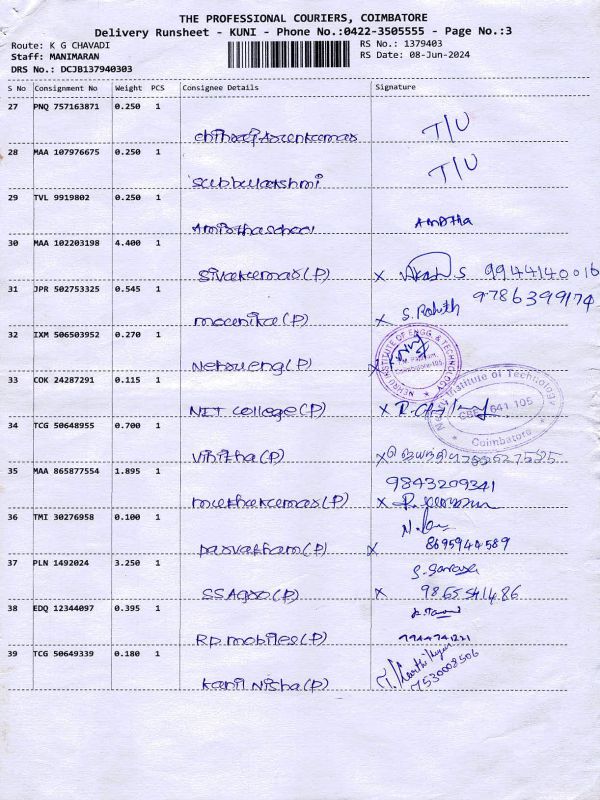 THE PROFESSIONAL COURIERS, COIMBATORE
Delivery Runsheet - KUNI - Phone No.:0422-3505555 - Page No.:3
Route: K G CHAVADI
RS No.: 1379403
Staff: MANIMARAN
RS Date: 08-Jun-2024
DRS No.: DCJB137940303
S No Consignment No Weight PCS Consignee Details Signature
27 PNQ 757163871 0.250 1
T/U
28 MAA 107976675 0.250 1
Subbulakshmi T/U
29 TVL 9919802 0.250 1
Amirtha school Amirtha
30 MAA 102203198 4.400 1
Sivakumar(P) x S 9944140016
31 JPR 502753325 0.545 1
9786399174
mounika(P) x S. Rohith
32 IXM 506503952 0.270 1
NEHRU INSTITUTE OF ENGG. & TECHNOLOGY
Nehru eng(P)
33 COK 24287291 0.115 1
Nehru Institute of Technology
CBE - 641 105
Coimbatore
NIT college(P) x
34 TCG 50648955 0.700 1
Vibitha(P) x
35 MAA 865877554 1.895 1
9843209341
muthukumar(P) x
36 TMI 30276958 0.100 1
parvatham(P) x 8695944589
37 PLN 1492024 3.250 1
SS Agro(P) x 9865541486
38 EDQ 12344097 0.395 1
Rp mobiles(P)
39 TCG 50649339 0.180 1
Kanil Nisha(P) 7530008506